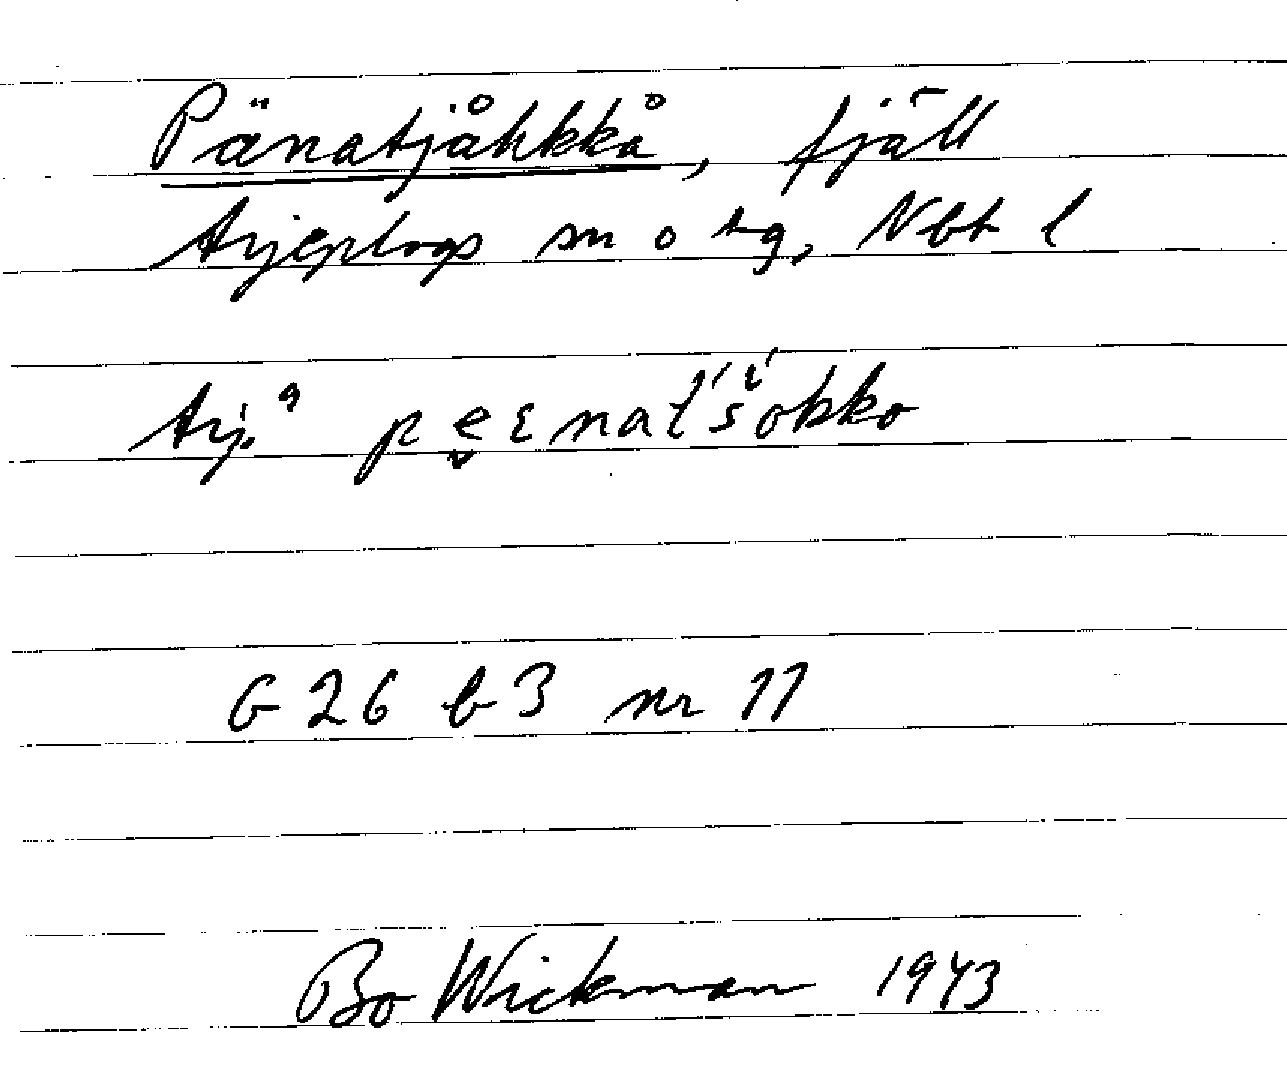 Pänatjåhkkå, fjäll
Arjeplogs sn o tg, Nbt l
Arj.
G 26 b 3 nr 11
Bo Wickman 1943